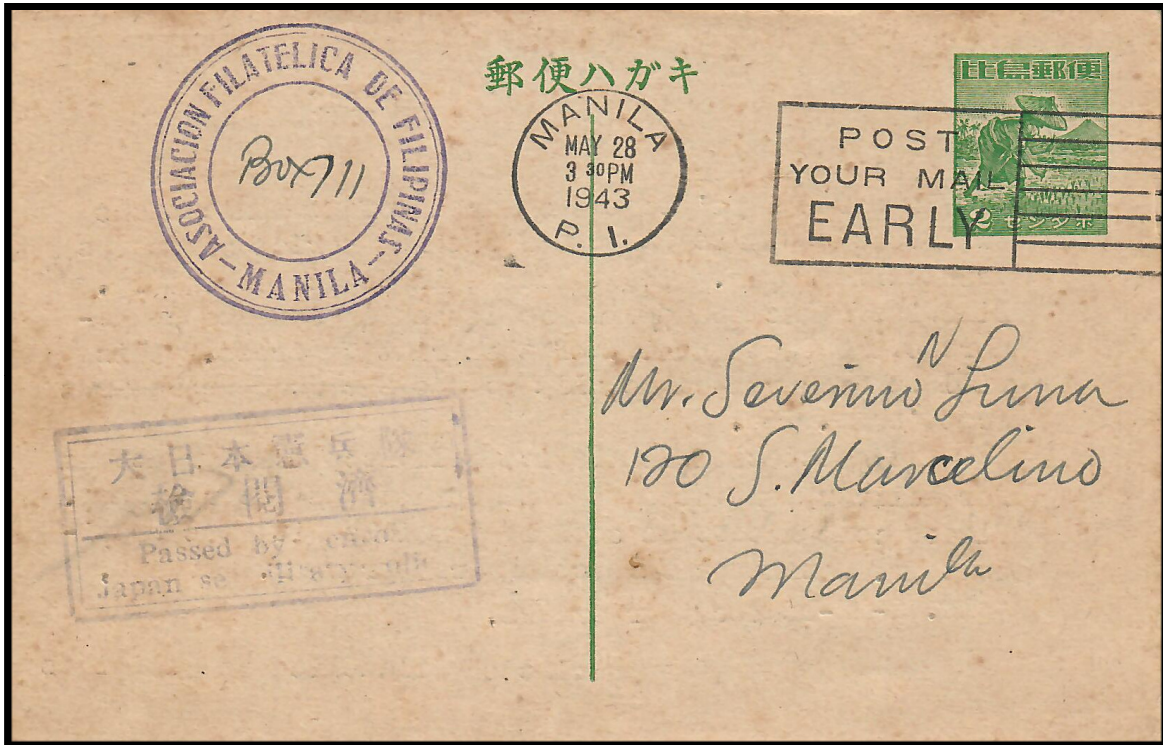 ASOCIACION FILATELICA DE FILIPINAS
—MANILA—
Box 711
郵便ハガキ
MANILA
MAY 28
3 30 PM
1943
P. I.
比島郵便
2 センタボ
POST
YOUR MAIL
EARLY
Mr. Severino N Luna
120 S. Marcelino
Manila
大日本憲兵隊
檢閲濟
Passed by
Japanese Military